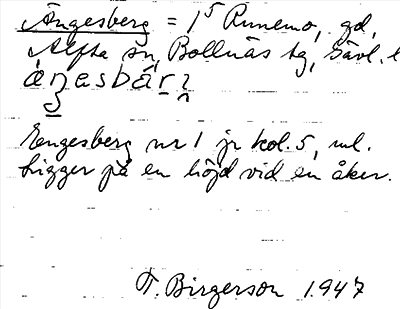 Ängesberg = 1⁵ Runemo, gd,
Alfta sn, Bollnäs tg, Gävl. l
Engesberg nr 1 jr kol. 5, ml.
Ligger på en höjd vid en åker.
T. Birgerson 1947